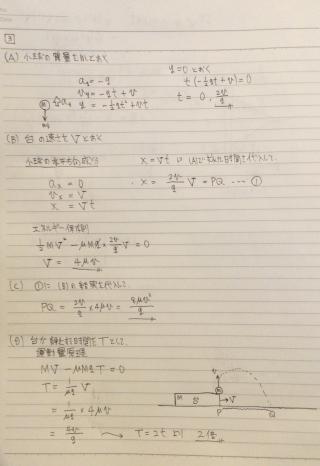 3
(A) 小球の質量をmとおく
ay = -g
vy = -gt + v
y = -½gt² + vt
y = 0 とおく
t(-½gt + v) = 0
t = 0, 2v/g
m
mg
(B) 台の速さをVとおく
小球の水平方向成分
ax = 0
vx = V
x = Vt
x = Vt に (A)で求めた時間を代入して、
x = 2v/g V = PQ --- ①
エネルギー
½MV² - μMg × 2v/g V = 0
V = 4μv
(C) ①に(B)の結果を代入して、
PQ = 2v/g × 4μv = 8μv²/g
台が静止する時間をTとして、
運動量原理
MV - μMgT = 0
T = 1/μg V
= 1/μg × 4μv
= 4v/g → T = 2t より 2倍
M 台
m
v
→V
P
Q